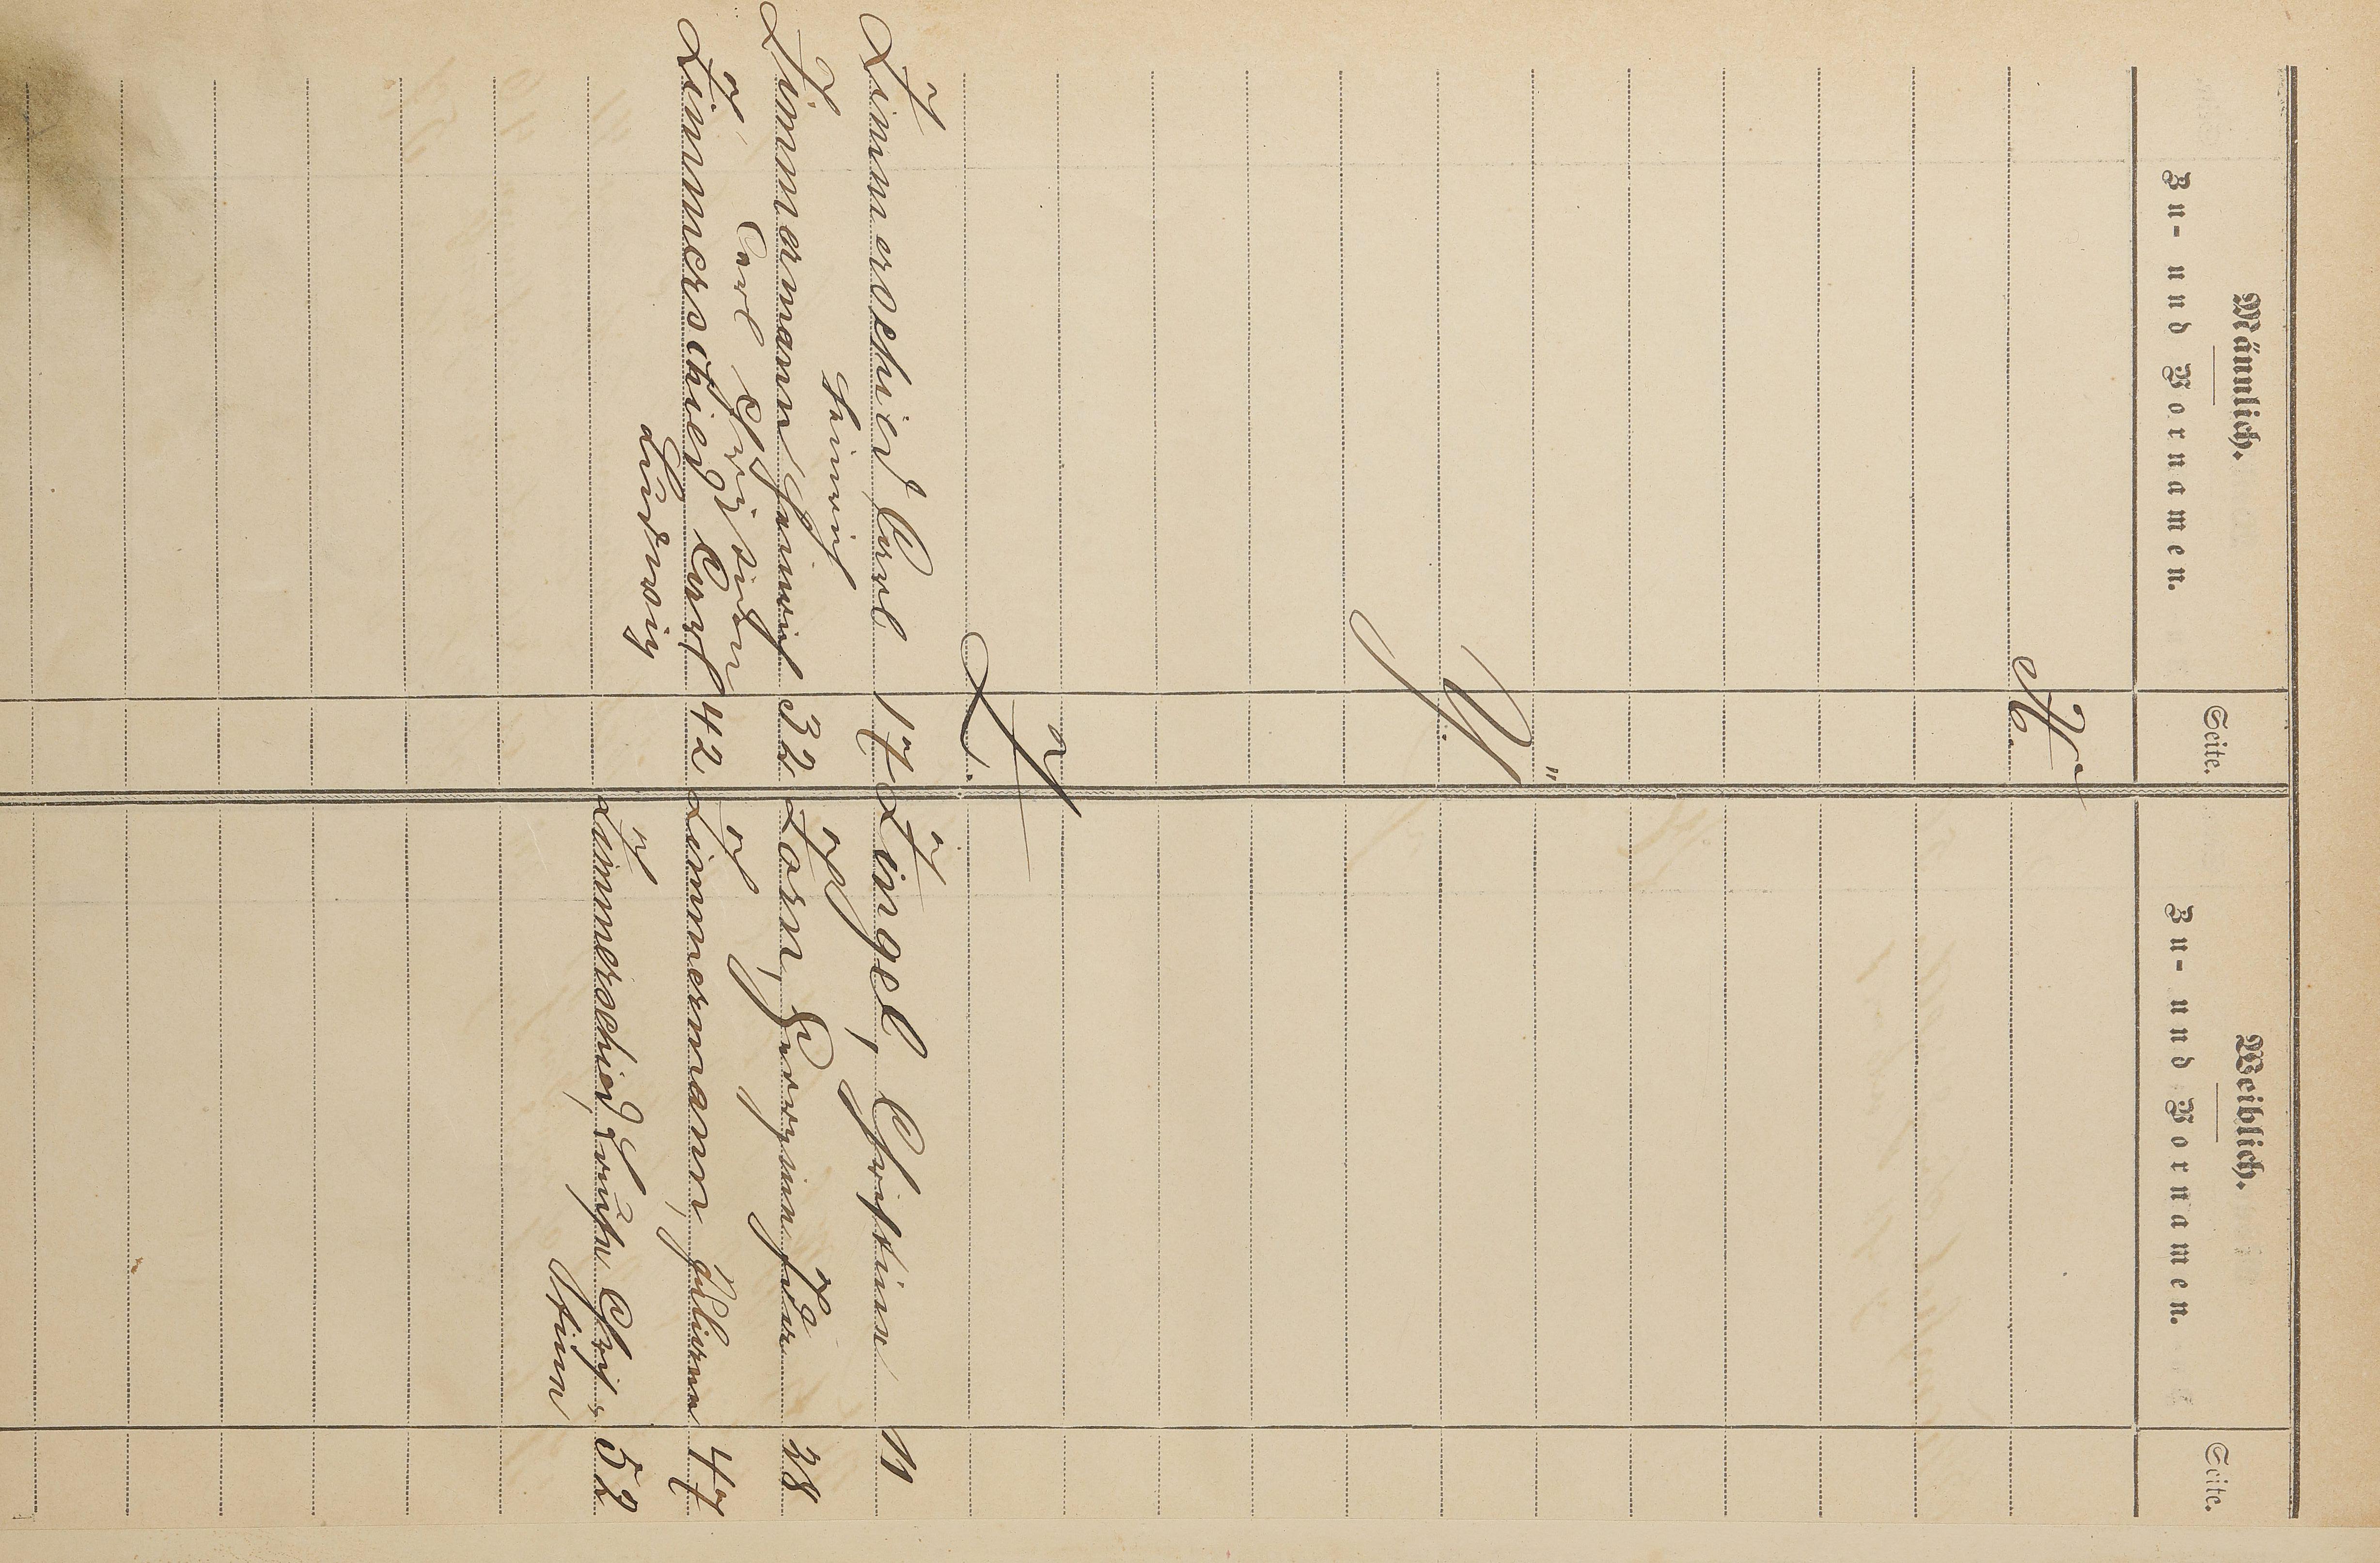 Männlich.
Zu- und Vornamen.
Seite.
Weiblich.
Zu- und Vornamen.
Seite.
X.
Y.
Z.
Zimmerschied Carl 17
Heinrich
Zimmermann Heinrich 32
Carl Christian
Zimmerschied Carl 42
Ludwig
Zingel, Christine 11
Zorn, 38
Zimmermann, Juliane 47
Zimmerschied, Louise Chris- 52
tine